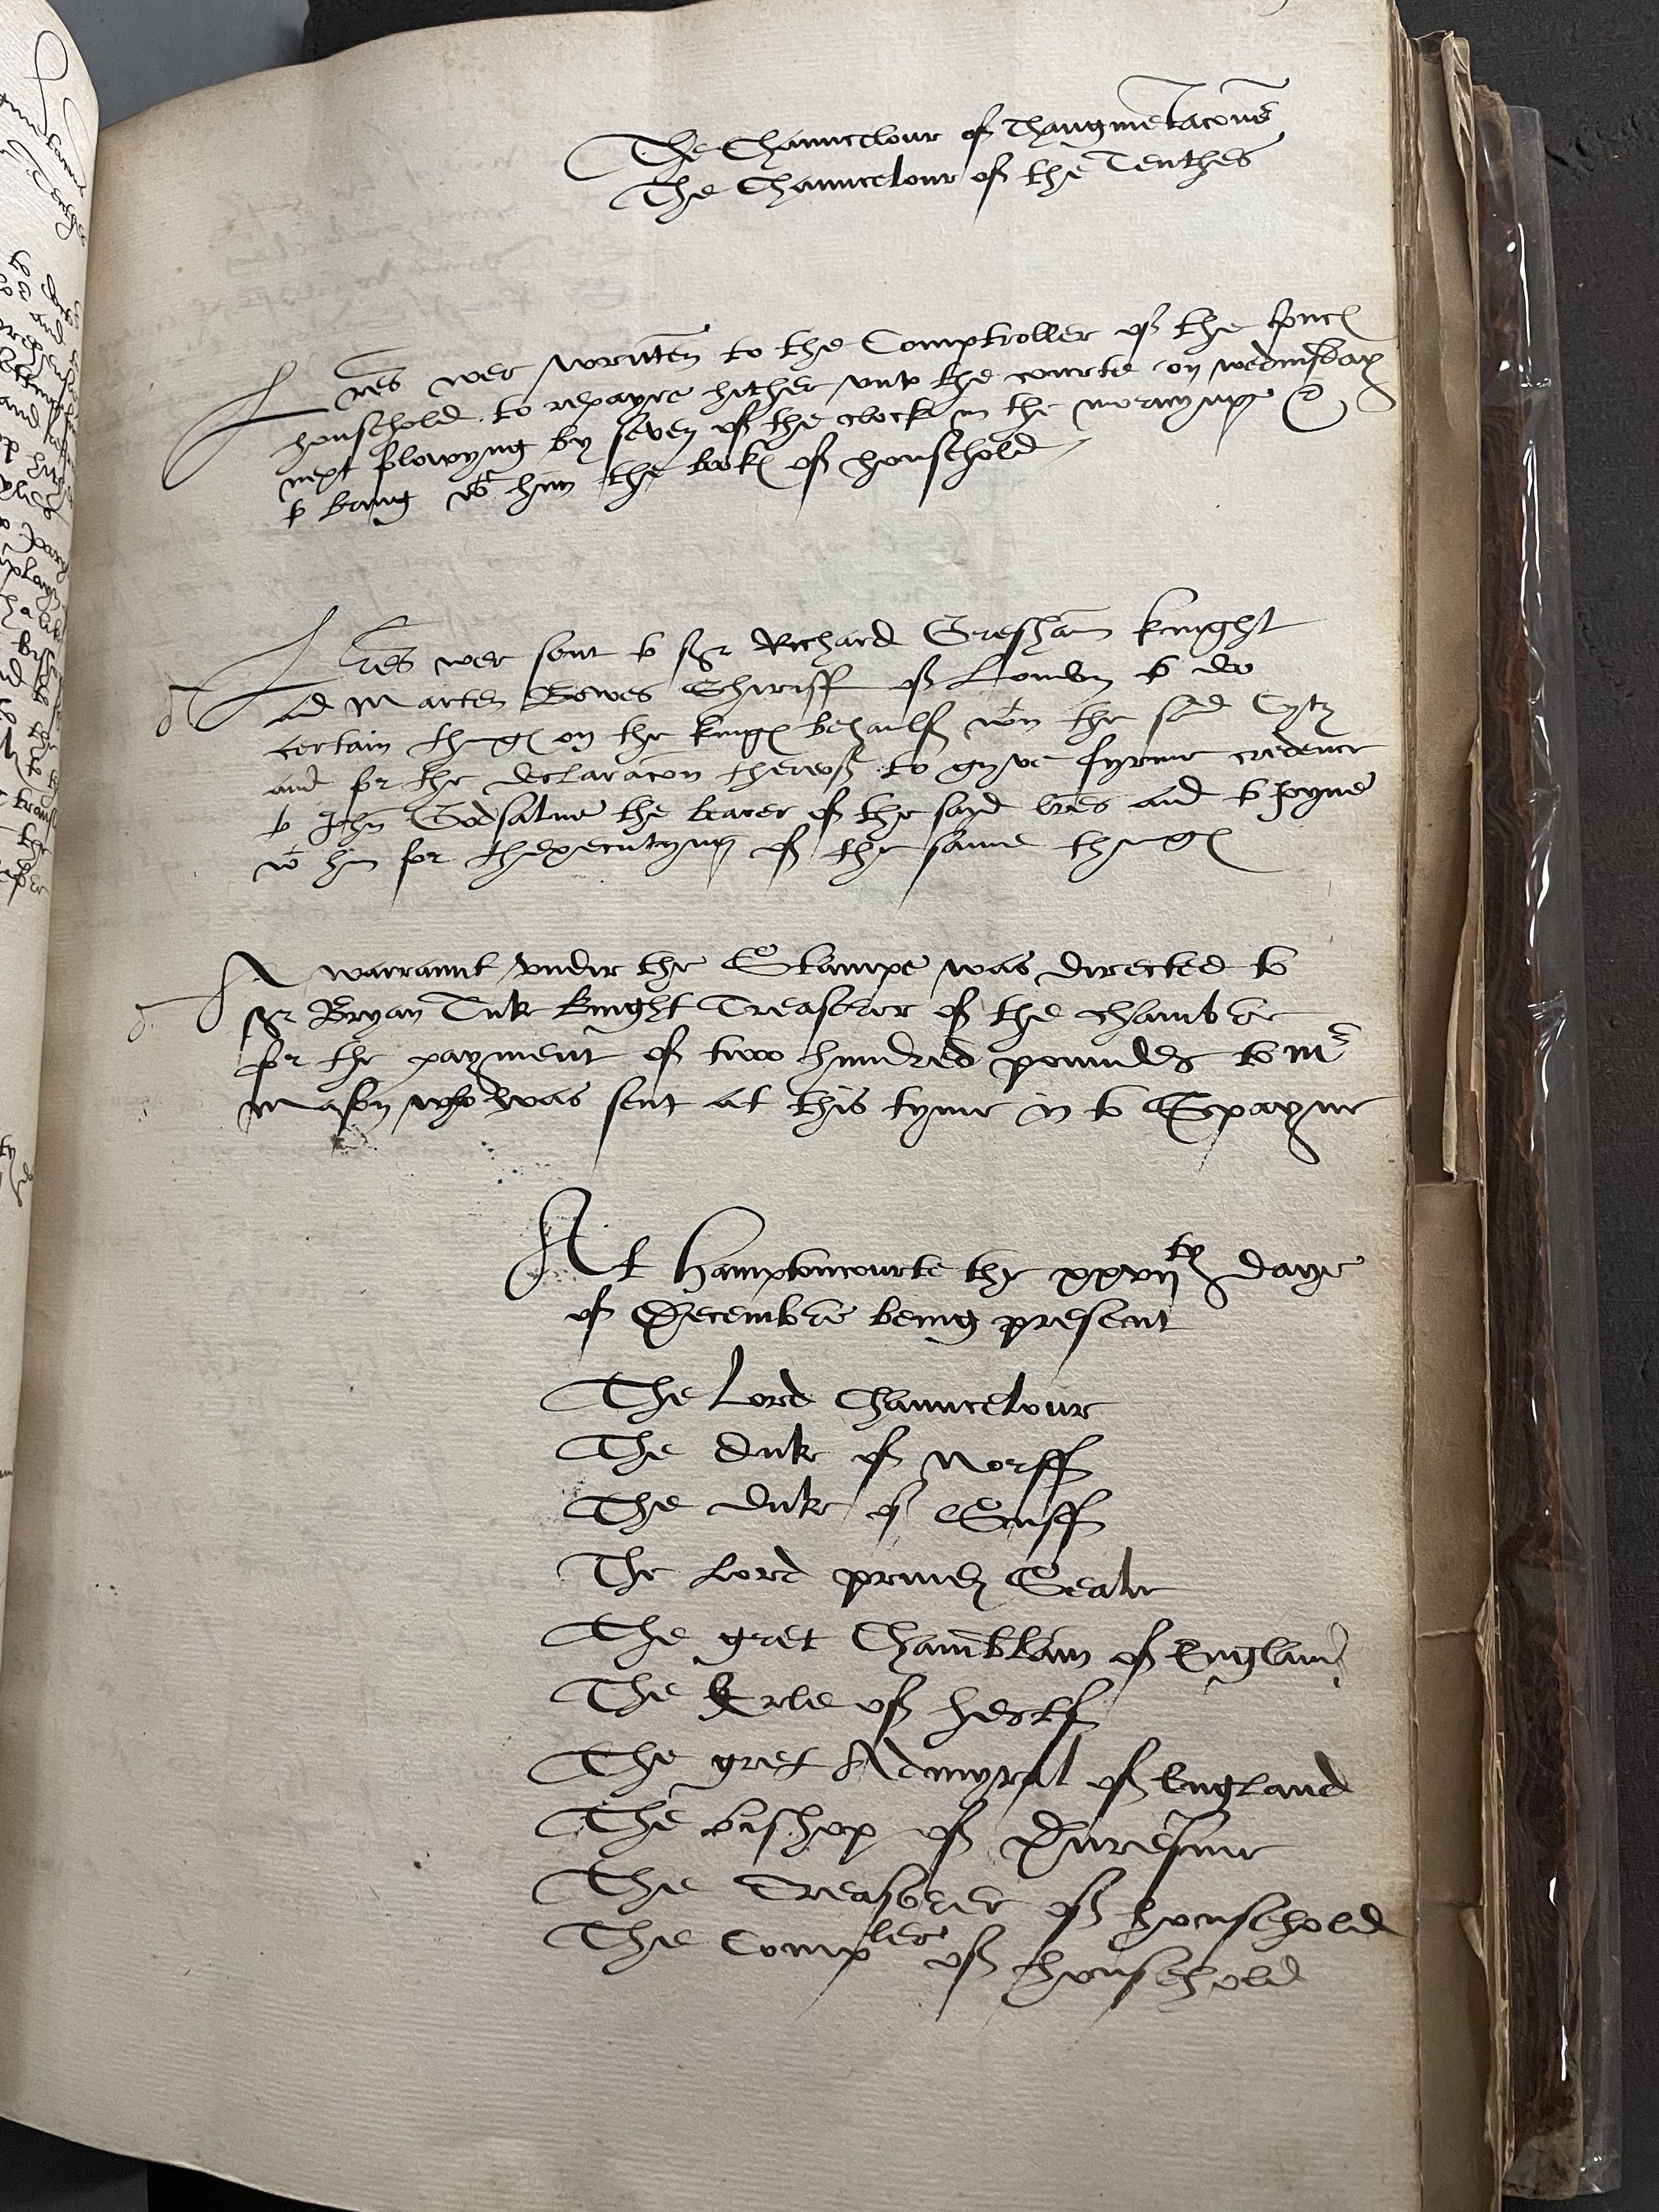 The Chauncelour of Thaugmetacons
The Chauncelour of the Tenthes
Lres wer written to the Comptroller of the princ
household to repayre hither vnto the courte on wednisday
next folowyng by seven of the clocke in the mornyng &
to bring wt him the bookes of household
Lres wer sent to Sr Richard Gresham knight
and Marten Bowes Shiriff of London to do
certain thinges on the kinges behaulf wtin the said Cyty
and for the declaracon therof to gyve fyrme credence
to John Godsalue the bearer of the sayd lres and to joyne
wt him for thexecutyng of the same thinges
A warraunt vnder the Stampe was directed to
Sr Bryan Tuke knight Treasorer of the chambre
for the payment of two hundred poundes to Mr
Mason who was sent at this tyme in to Spayne
At Hamptoncourte the xxvijty daye
of Decembre being present
The Lord Chauncelour
The Duke of Norff
The Duke of Suff
The Lord privey Seale
The gret Chambrlain of England
The Erle of Hertf
The gret Admyral of England
The bisshop of Duresme
The Treasorer of household
The Compler of household